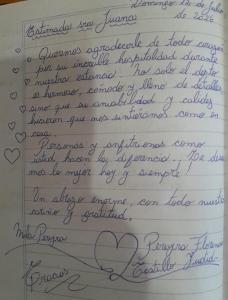 Domingo 12 de Julio
de 2026
Estimada sra Juana
Queremos agradecerle de todo corazón
por su increíble hospitalidad durante
nuestra estancia. No solo el depto
es hermoso, cómodo y lleno de detalles
sino que su amabilidad y calidez
hicieron que nos sintiéramos como en
casa.
Personas y anfitrionas como
usted, hacen la diferencia. Le desea
mos lo mejor hoy y siempre
Un abrazo enorme, con todo nuestro
cariño y gratitud.
Pereyra
Pereyra Florencia
Castillo Judid
Gracias